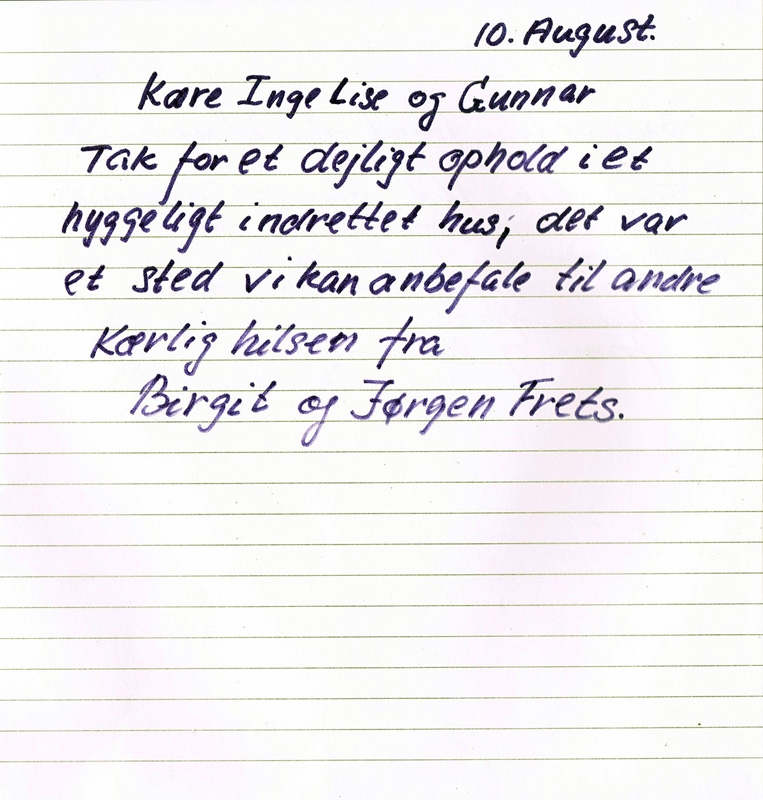 10. August.
Kære Inge Lise og Gunnar
Tak for et dejligt ophold i et
hyggeligt indrettet hus, det var
et sted vi kan anbefale til andre
Kærlig hilsen fra
Birgit og Jørgen Frets.